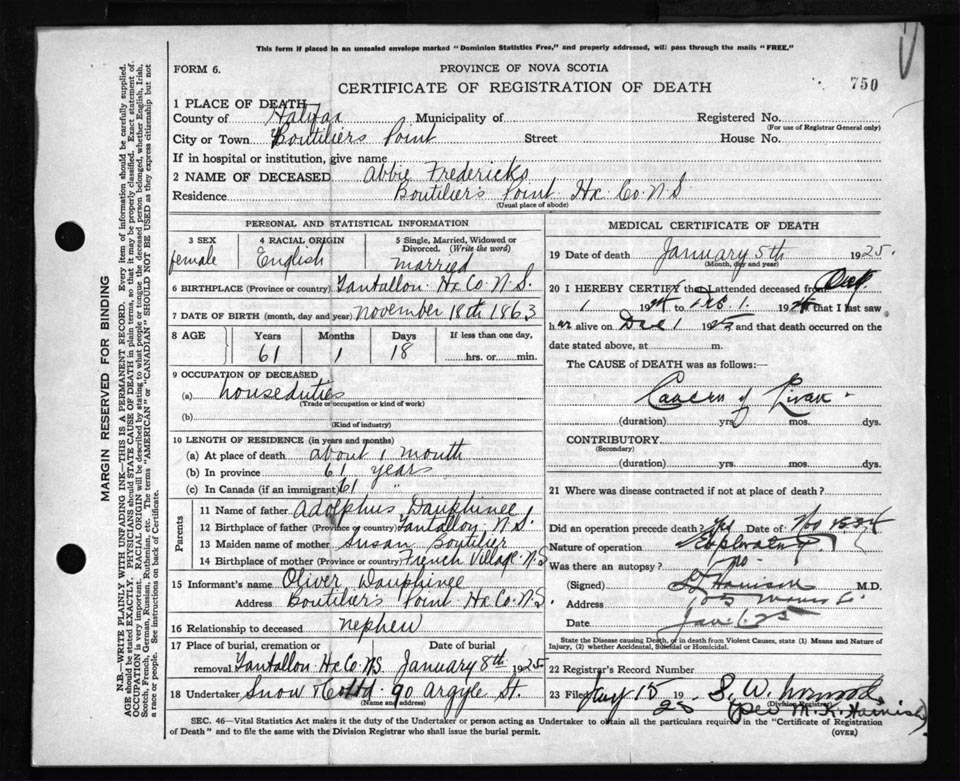 This form if placed in an unsealed envelope marked "Dominion Statistics Free," and properly addressed, will pass through the mails "FREE."
FORM 6.
PROVINCE OF NOVA SCOTIA
CERTIFICATE OF REGISTRATION OF DEATH
750
1 PLACE OF DEATH
County of Halifax Municipality of Registered No.
(For use of Registrar General only)
City or Town Boutiliers Point Street House No.
If in hospital or institution, give name
2 NAME OF DECEASED Abbie Fredericks
Residence Boutiliers Point Hx. Co. N.S.
(Usual place of abode)
PERSONAL AND STATISTICAL INFORMATION
3 SEX female
4 RACIAL ORIGIN English
5 Single, Married, Widowed or Divorced. (Write the word) married
6 BIRTHPLACE (Province or country) Tantallon Hx Co N.S.
7 DATE OF BIRTH (month, day and year) November 18th 1863
8 AGE Years Months Days If less than one day,
61 1 18 hrs. or min.
9 OCCUPATION OF DECEASED
(a) houseduties
(Trade or occupation or kind of work)
(b)
(Kind of industry)
10 LENGTH OF RESIDENCE (in years and months)
(a) At place of death about 1 month
(b) In province 61 years
(c) In Canada (if an immigrant) 61 "
Parents
11 Name of father Adolphus Dauphinee
12 Birthplace of father (Province or country) Tantallon N.S.
13 Maiden name of mother Susan Boutilier
14 Birthplace of mother (Province or country) French Village N.S
15 Informant's name Oliver Dauphinee
Address Boutiliers Point Hx Co. N.S.
16 Relationship to deceased nephew
17 Place of burial or removal Tantallon Hx Co. N.S Date of burial January 8th 1925
18 Undertaker Snow & Co Ltd. 90 Argyle St.
(Name and address)
MEDICAL CERTIFICATE OF DEATH
19 Date of death January 5th 1925.
(Month, day and year)
20 I HEREBY CERTIFY that I attended deceased from
1 1924 to 1. 1924 that I last saw
her alive on Dec 1 192 and that death occurred on the
date stated above, at m.
The CAUSE OF DEATH was as follows:—
Cancer of Liver
(duration) yrs. mos. dys.
CONTRIBUTORY
(Secondary)
(duration) yrs. mos. dys.
21 Where was disease contracted if not at place of death?
Did an operation precede death? Yes Date of Nov 24
Nature of operation Exploratory
Was there an autopsy? no
(Signed) M.D.
Address
Date Jan 6. 25
State the Disease causing Death, or in death from Violent Causes, state (1) Means and Nature of Injury, (2) whether Accidental, Suicidal or Homicidal.
22 Registrar's Record Number
23 Filed Jany 15 1925 S. W.
(Division Registrar)
(per M. K. Hainish)
SEC. 46—Vital Statistics Act makes it the duty of the Undertaker or person acting as Undertaker to obtain all the particulars required in the "Certificate of Registration
of Death" and to file the same with the Division Registrar who shall issue the burial permit.
(OVER)
MARGIN RESERVED FOR BINDING
N.B.—WRITE PLAINLY WITH UNFADING INK—THIS IS A PERMANENT RECORD. Every item of information should be carefully supplied.
AGE should be stated EXACTLY. PHYSICIANS should STATE CAUSE OF DEATH in plain terms, so that it may be properly classified. Exact statement of
OCCUPATION is very important. RACIAL ORIGIN will be described by stating to what people or tongue the deceased person belonged, whether English, Irish,
Scotch, French, German, Russian, Ruthenian, etc. The terms "AMERICAN" or "CANADIAN" SHOULD NOT BE USED as they express citizenship but not
a race or people. See instructions on back of Certificate.